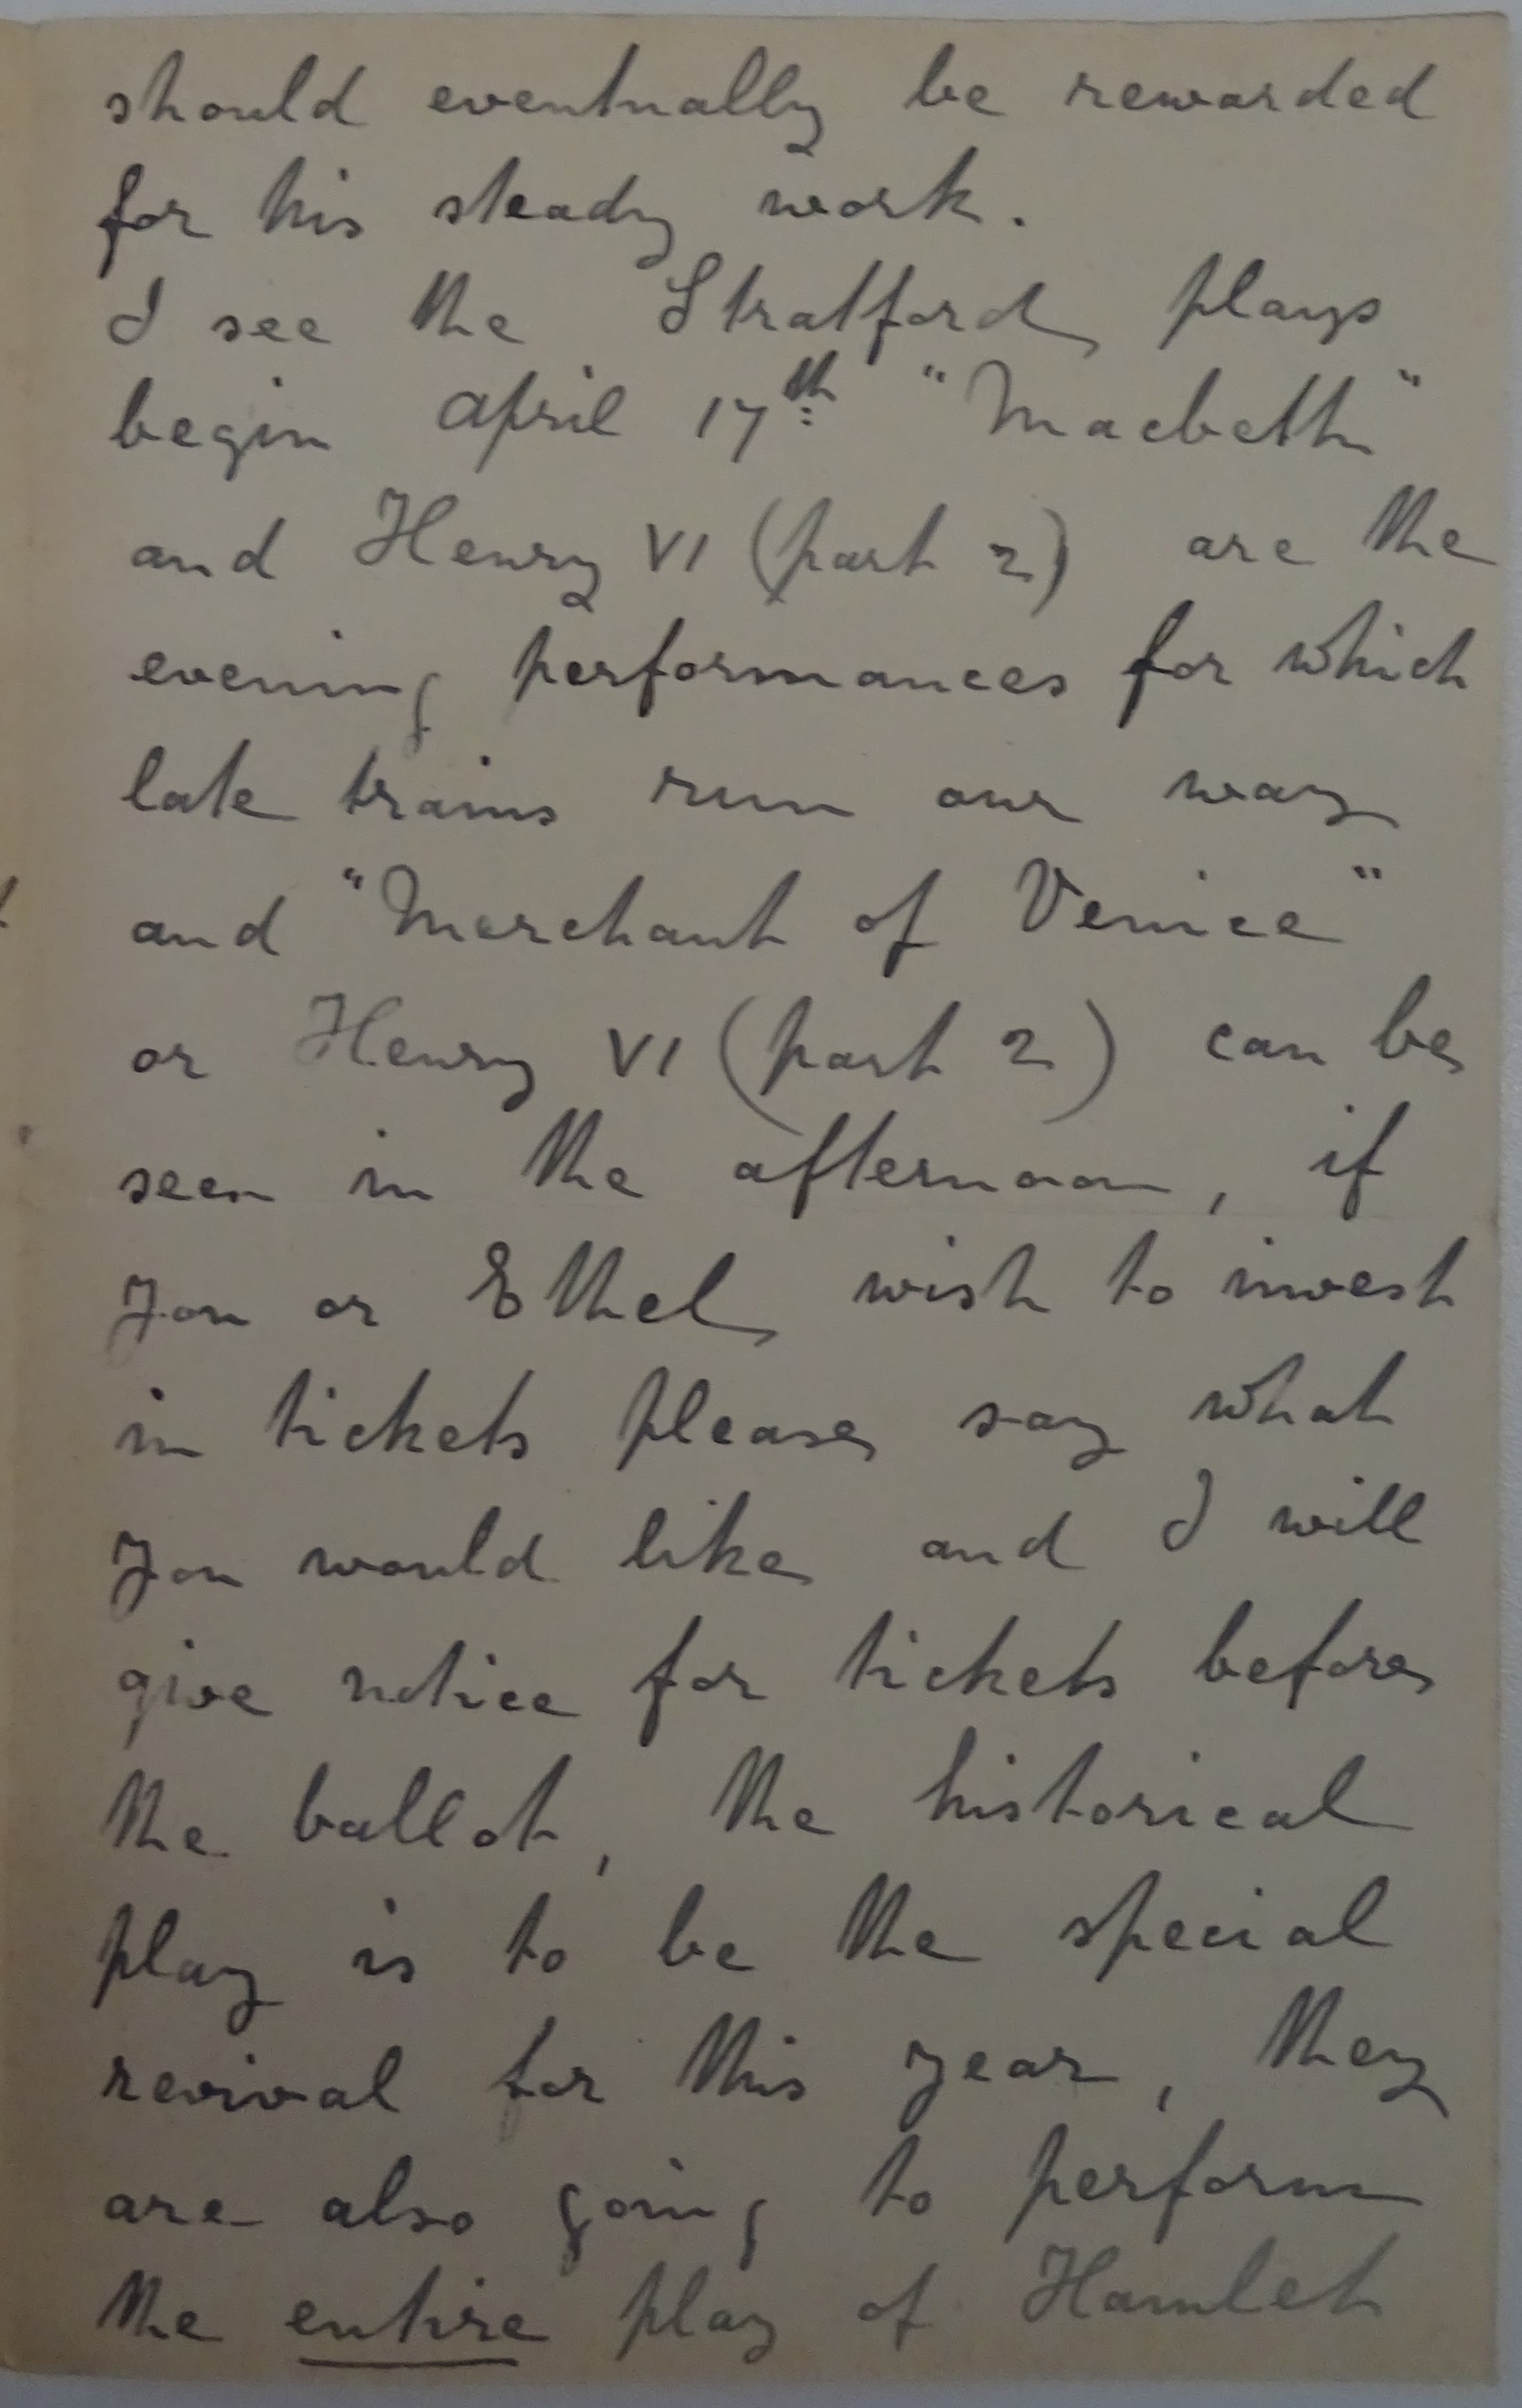 should eventually be rewarded
for his steady work.
I see the Stratford plays
begin April 17th "Macbeth"
and Henry VI (part 2) are the
evening performances for which
late trains run our way
and "Merchant of Venice"
or Henry VI (part 2) can be
seen in the afternoon, if
you or Ethel wish to invest
in tickets please say what
you would like and I will
give notice for tickets before
the ballot, the historical
play is to be the special
revival for this year, they
are also going to perform
the entire play of Hamlet